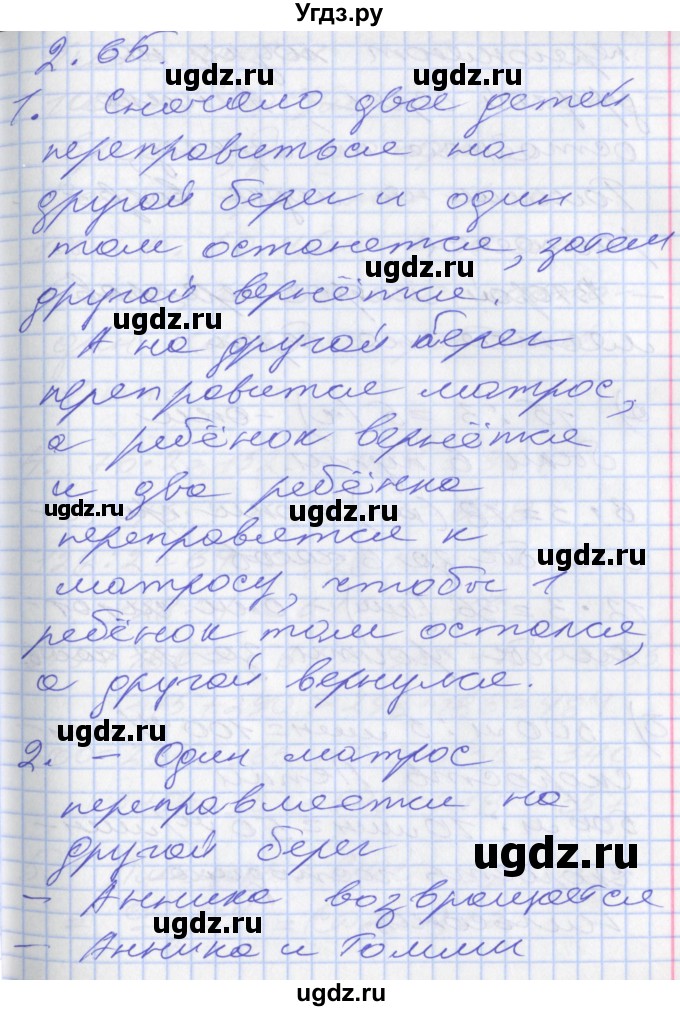 Угдз.ру
2.65.
ugdz.ru
1. Сначало двое детей
переправиться на
ugdz.ru
другой берег и один
там останется, затем
ugdz.ru
другой вернётся.
ugdz.ru
А на другой берег
переправится матрос,
а ребёнок вернётся
и два ребёнка
ugdz.ru
ugdz.ru
переправятся к
ugdz.ru
матросу, чтобы 1
ребёнок там остался,
а другой вернулся.
ugdz.ru
2. – Один матрос
переправляется на
другой берег
ugdz.ru
– Анника возвращается
ugdz.ru
– Анника и Томми
ugdz.ru